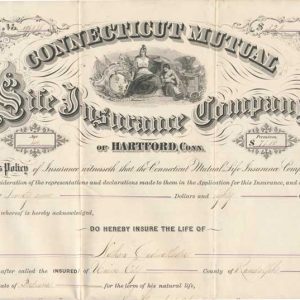 No.
$
CONNECTICUT MUTUAL
Life Insurance Company
Age
OF HARTFORD, CONN.
Premium
s Policy of Insurance witnesseth that the Connecticut Mutual Life Insurance Comp
sideration of the representations and declarations made to them in the Application for this Insurance, and
Dollars and fifty
whereof is hereby acknowledged,
DO HEREBY INSURE THE LIFE OF
after called the INSURED) of Union City County of Randolph
ate of Indiana for the term of his natural life,